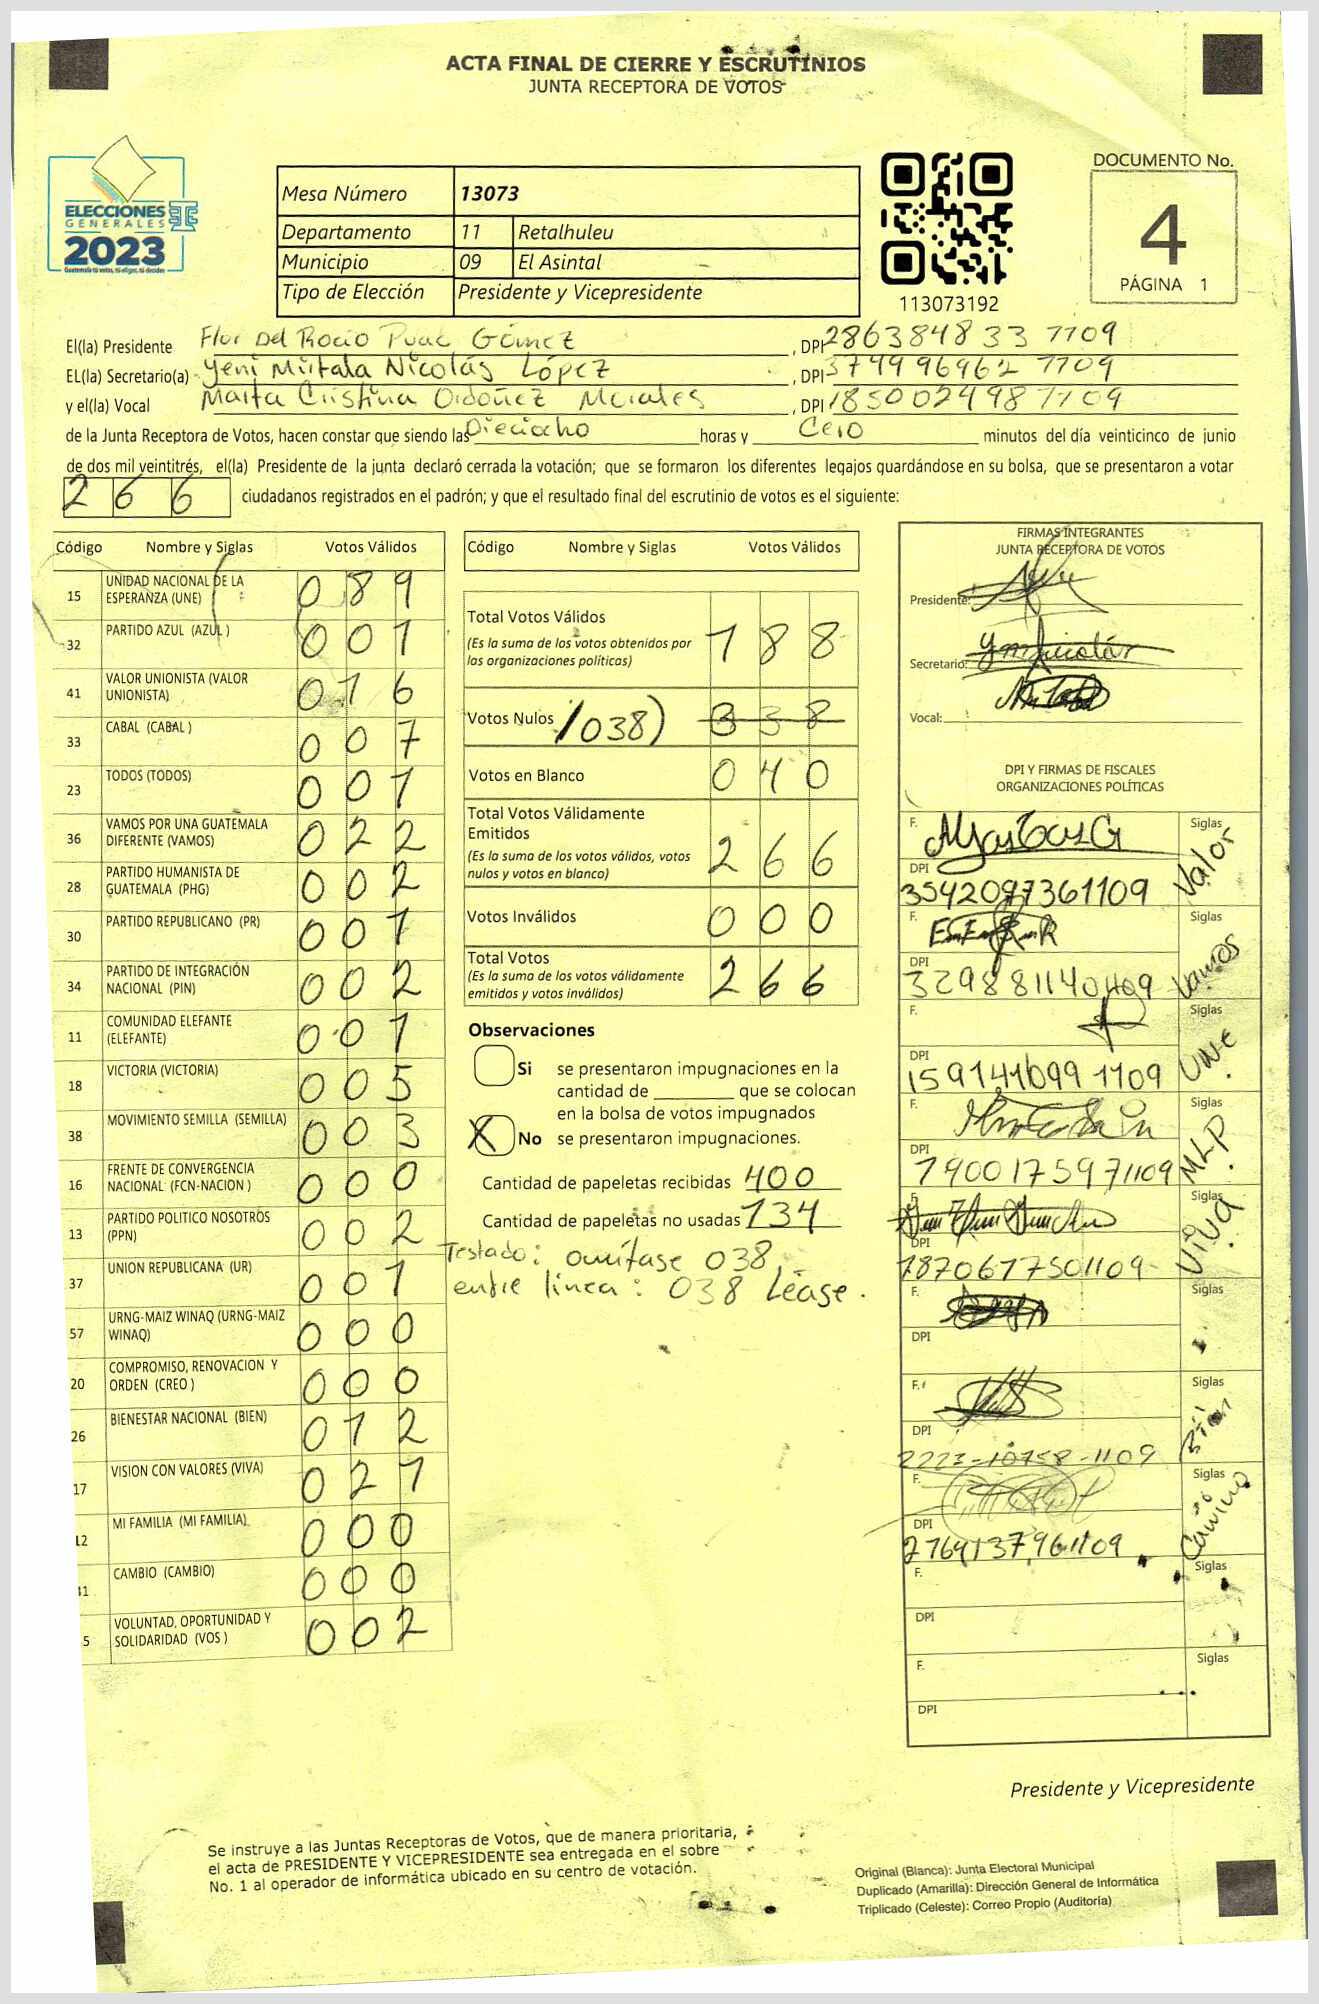 ACTA FINAL DE CIERRE Y ESCRUTINIOS
JUNTA RECEPTORA DE VOTOS
ELECCIONES
GENERALES
2023
Guatemala tú votas, tú eliges, tú decides
Mesa Número 13073
Departamento 11 Retalhuleu
Municipio 09 El Asintal
Tipo de Elección Presidente y Vicepresidente
113073192
DOCUMENTO No.
4
PÁGINA 1
El(la) Presidente Flor Del Rocío Puac Gómez, DPI 286384833 1109
EL(la) Secretario(a) Yeni Mirtala Nicolás López, DPI 379996962 1109
y el(la) Vocal Marta Cristina Ordoñez Morales, DPI 185002498 1109
de la Junta Receptora de Votos, hacen constar que siendo las Dieciocho horas y Cero minutos del día veinticinco de junio
de dos mil veintitrés, el(la) Presidente de la junta declaró cerrada la votación; que se formaron los diferentes legajos guardándose en su bolsa, que se presentaron a votar
266 ciudadanos registrados en el padrón; y que el resultado final del escrutinio de votos es el siguiente:
Código Nombre y Siglas Votos Válidos
15 UNIDAD NACIONAL DE LA ESPERANZA (UNE) 089
32 PARTIDO AZUL (AZUL ) 001
41 VALOR UNIONISTA (VALOR UNIONISTA) 016
33 CABAL (CABAL ) 007
23 TODOS (TODOS) 001
36 VAMOS POR UNA GUATEMALA DIFERENTE (VAMOS) 022
28 PARTIDO HUMANISTA DE GUATEMALA (PHG) 002
30 PARTIDO REPUBLICANO (PR) 001
34 PARTIDO DE INTEGRACIÓN NACIONAL (PIN) 002
11 COMUNIDAD ELEFANTE (ELEFANTE) 001
18 VICTORIA (VICTORIA) 005
38 MOVIMIENTO SEMILLA (SEMILLA) 003
16 FRENTE DE CONVERGENCIA NACIONAL (FCN-NACION ) 000
13 PARTIDO POLITICO NOSOTROS (PPN) 002
37 UNION REPUBLICANA (UR) 001
57 URNG-MAIZ WINAQ (URNG-MAIZ WINAQ) 000
20 COMPROMISO, RENOVACION Y ORDEN (CREO ) 000
26 BIENESTAR NACIONAL (BIEN) 012
17 VISION CON VALORES (VIVA) 021
12 MI FAMILIA (MI FAMILIA) 000
11 CAMBIO (CAMBIO) 000
5 VOLUNTAD, OPORTUNIDAD Y SOLIDARIDAD (VOS ) 002
Código Nombre y Siglas Votos Válidos
Total Votos Válidos 188
(Es la suma de los votos obtenidos por
las organizaciones políticas)
Votos Nulos /038) 338
Votos en Blanco 040
Total Votos Válidamente
Emitidos 266
(Es la suma de los votos válidos, votos
nulos y votos en blanco)
Votos Inválidos 000
Total Votos 266
(Es la suma de los votos válidamente
emitidos y votos inválidos)
Observaciones
Si se presentaron impugnaciones en la
cantidad de ________ que se colocan
en la bolsa de votos impugnados
X No se presentaron impugnaciones.
Cantidad de papeletas recibidas 400
Cantidad de papeletas no usadas 134
Testado: omítase 038,
entre línea: 038 Léase.
FIRMAS INTEGRANTES
JUNTA RECEPTORA DE VOTOS
Presidente:
Secretario:
Vocal:
DPI Y FIRMAS DE FISCALES
ORGANIZACIONES POLÍTICAS
F. Siglas Valor
DPI 3542097361109
F. Siglas Vamos
DPI 3298811401109
F. Siglas UNE
DPI 1591410991109
F. Siglas MLP
DPI 1900175971109
F. Siglas Viva
DPI 1870617501109
F. Siglas
DPI
F. Siglas Bien
DPI 2223-10758-1109
F. Siglas Camino
DPI 2769137961109
F. Siglas
DPI
F. Siglas
DPI
Presidente y Vicepresidente
Se instruye a las Juntas Receptoras de Votos, que de manera prioritaria,
el acta de PRESIDENTE Y VICEPRESIDENTE sea entregada en el sobre
No. 1 al operador de informática ubicado en su centro de votación.
Original (Blanca): Junta Electoral Municipal
Duplicado (Amarilla): Dirección General de Informática
Triplicado (Celeste): Correo Propio (Auditoría)